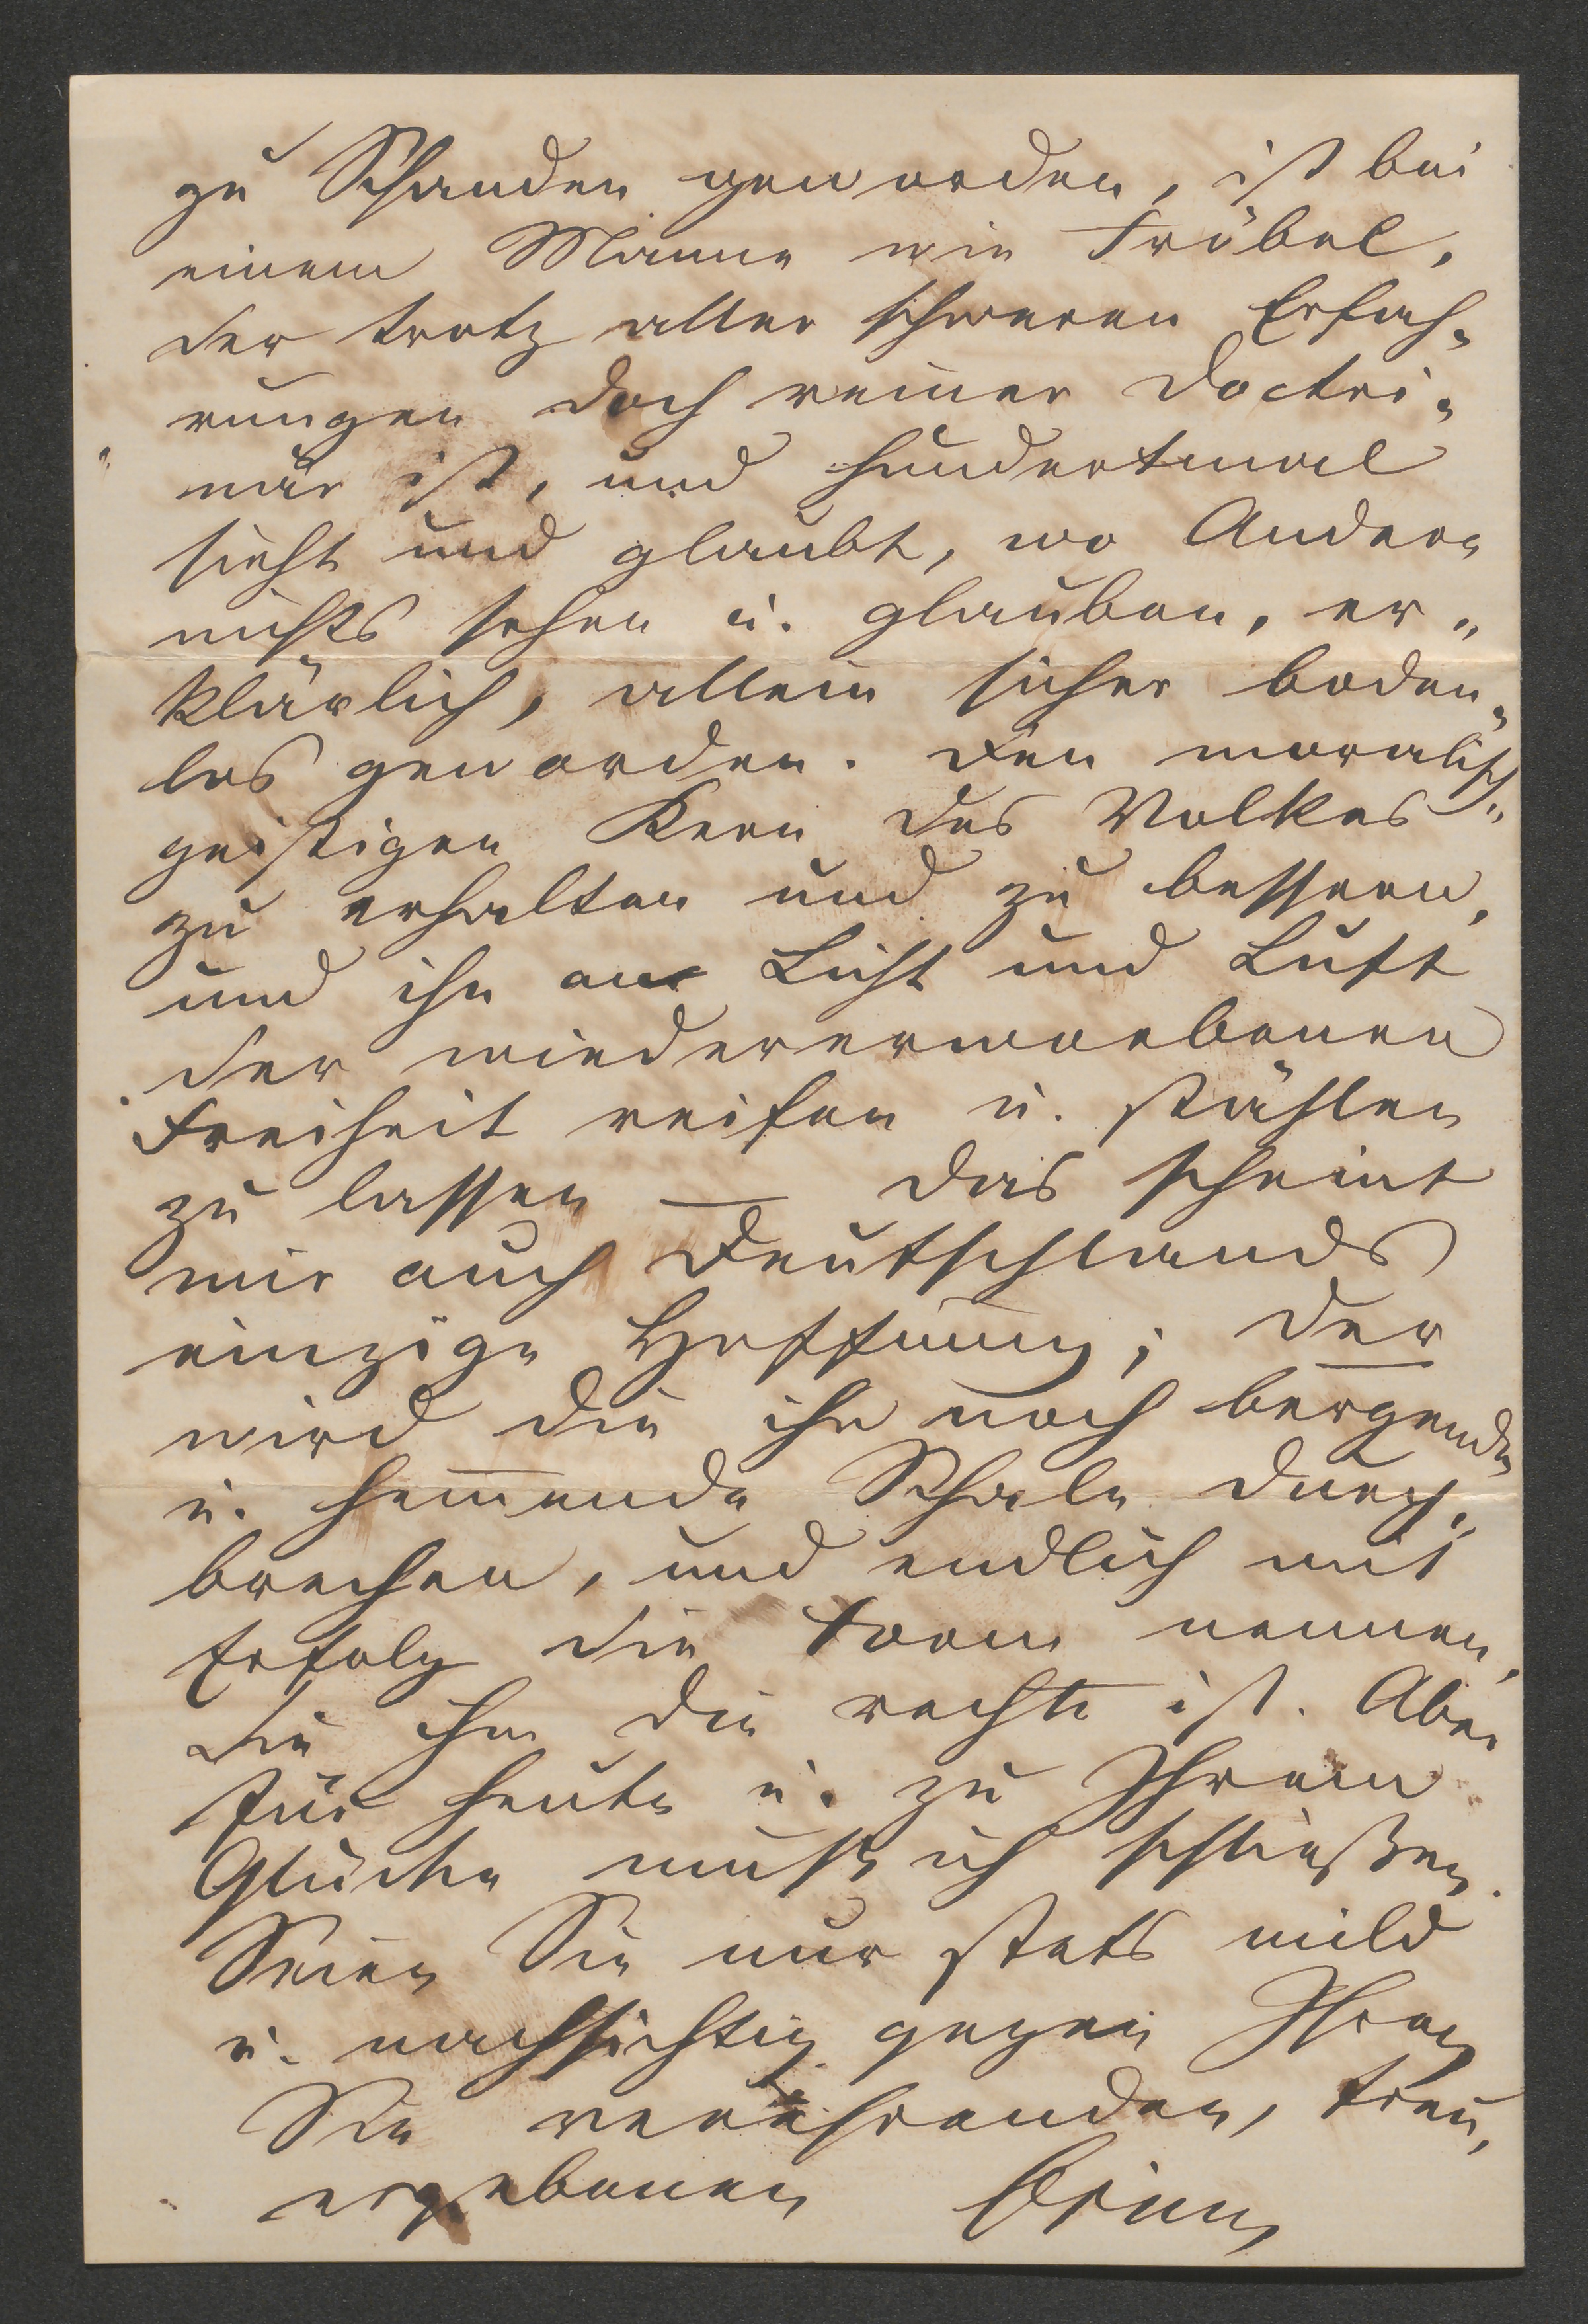 zu Schanden geworden, ist bei
einem Manne wie Fröbel,
der trotz aller schweren Erfah-
rungen doch reiner Doctri-
när ist, und hundertmal
sieht und glaubt, wo Andere
nichts sehen u. glauben, er-
klärlich, allein sicher boden-
los geworden. Den moralisch-
geistigen Kern des Volkes
zu erhalten und zu bessern,
und ihn an Licht und Luft
der wiedererworbenen
Freiheit reifen u. stählen
zu lassen — das scheint
mir auch Deutschlands
einzige Hoffnung; der
wird die ihn noch bergende
u. hem̅ende Schale durch-
brechen, und endlich mit
Erfolg die Form nennen,
die ihm die rechte ist. Aber
für heute u. zu Ihrem
Glücke muß ich schließen.
Seien Sie nur stets mild
u. nachsichtig gegen Ihren
Sie verehrenden, treu-
ergebenen